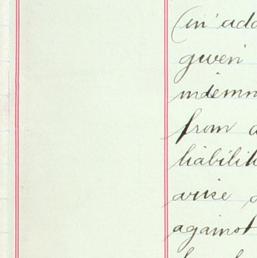 (in add
given
indemn
from a
liabilit
arise o
against